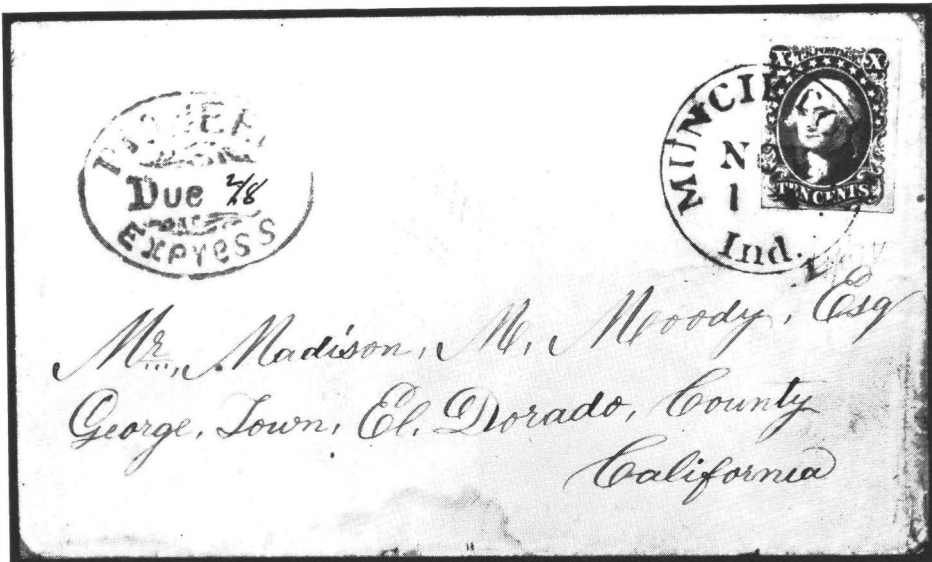 PIONEER
Due 2/8
EXPRESS
MUNCIE
N
1
Ind.
X U.S. POSTAGE X
TEN CENTS.
Mr., Madison, M, Moody, Esq
George, Town, El, Dorado, County
California